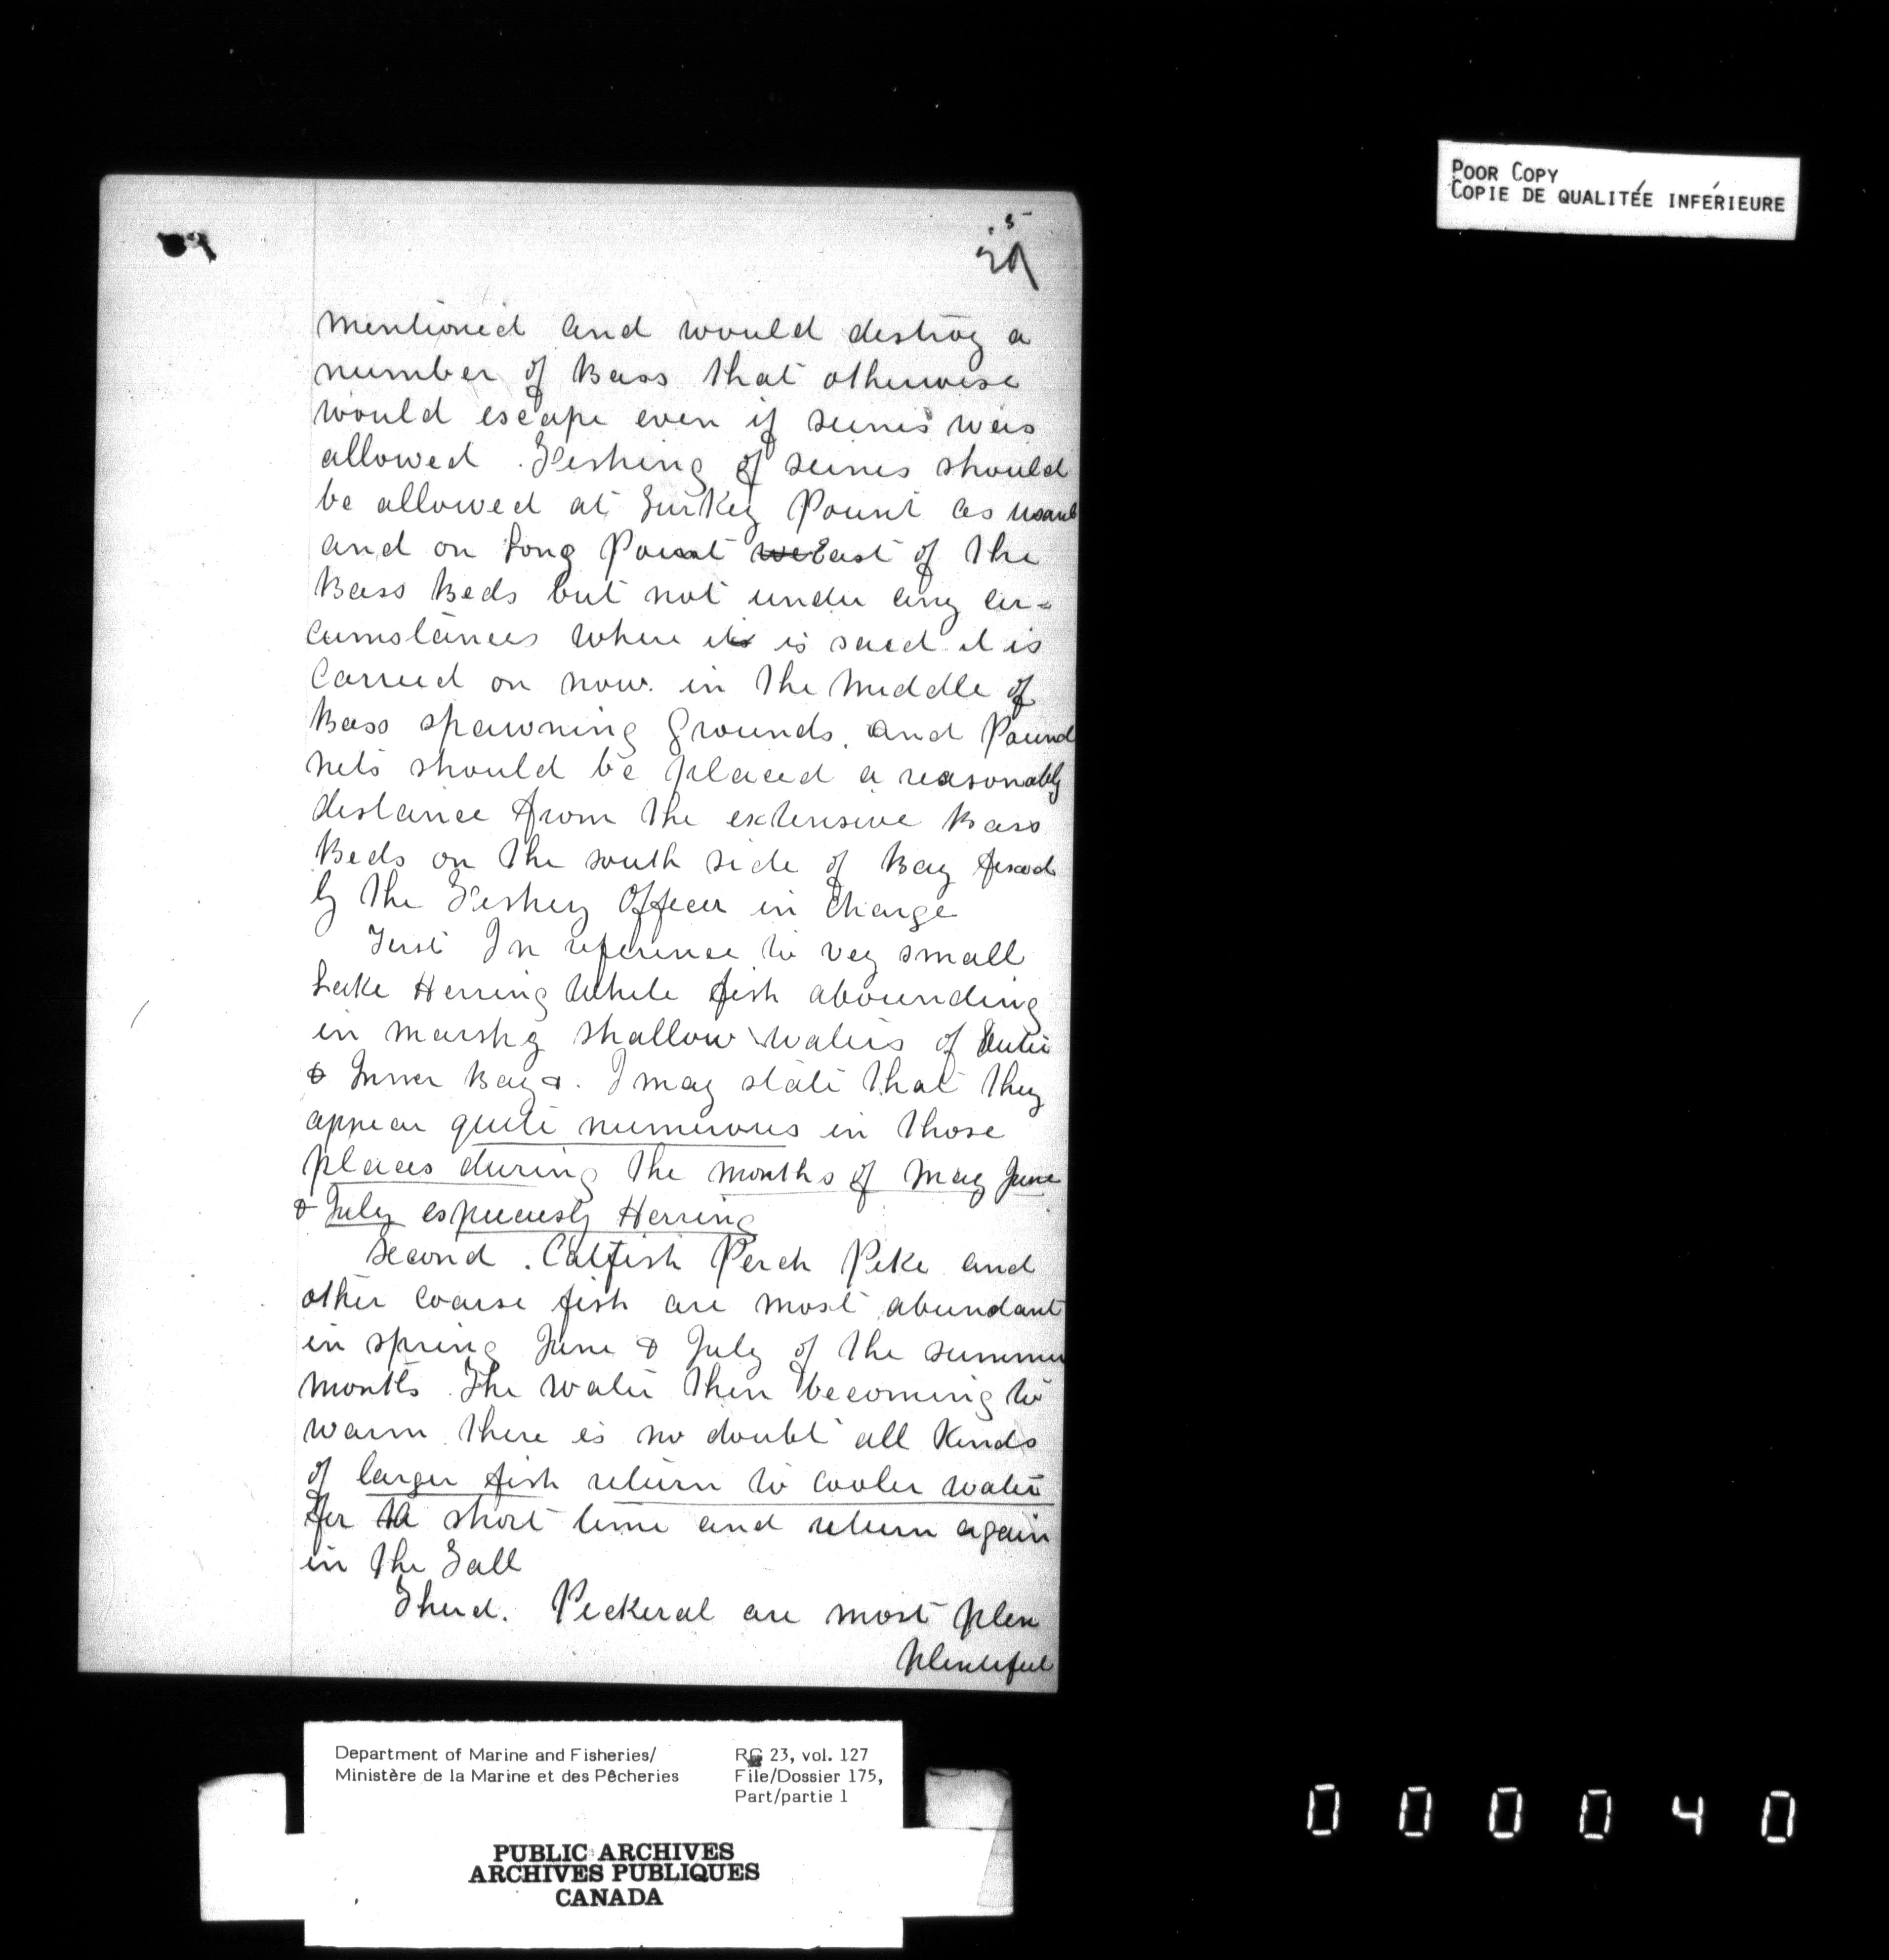 POOR COPY
COPIE DE QUALITÉE INFÉRIEURE
5
mentioned and would destroy a
number of Bass that otherwise
would escape even if seines wers
allowed. Fishing of seines should
be allowed at Turkey Pount as usaul
and on Long Pount we East of the
Bass Beds but not under any cir=
cumstances where its is said it is
carried on now in the middle of
Bass spawning Grounds. and Pound
nets should be placed a reasonably
distance from the extensive Bass
Beds on the south side of Bay fixed
by the Fishery Officer in Charge
First In reference to vey small
Lake Herring White fish abounding
in marshy shallow waters of Outer
& Inner Bays. I may state that they
appear quite numerous in those
places during the months of may June
& July especiesly Herring
Second. Catfish Perch Pike and
other coarse fish are most abundant
in spring June & July of the summer
months. The water then becoming to
warm there is no doubt all Kinds
of larger fish return to cooler water
for a short time and return again
in the Fall
Third. Pickeral are most plen
plentiful
Department of Marine and Fisheries/
Ministère de la Marine et des Pêcheries
RG 23, vol. 127
File/Dossier 175,
Part/partie 1
PUBLIC ARCHIVES
ARCHIVES PUBLIQUES
CANADA
000040